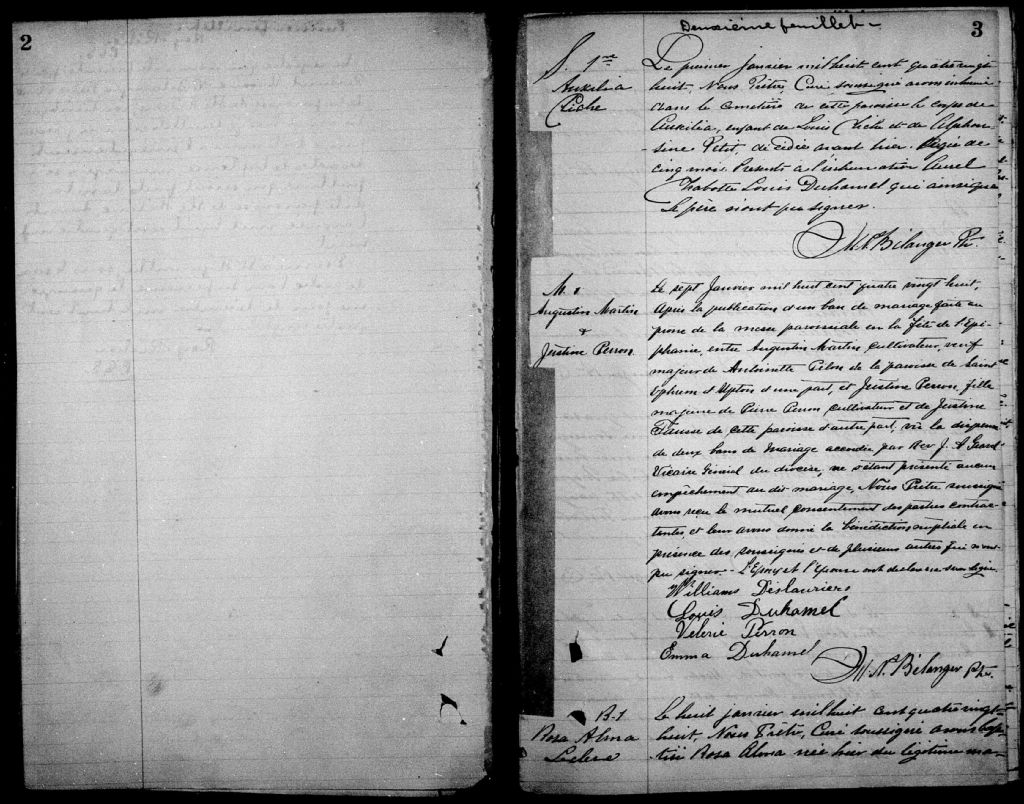 2
Deuxième feuillet
3
S. 1re
Auxilia
Piché
Le premier janvier mil huit cent quatre vingt
huit, Nous Prêtre Curé soussigné avons inhumé
dans le cimetière de cette paroisse le corps de
Auxilia, enfant de Louis Piché et de Alphon-
sine Petit, décédée avant hier. Agée de
cinq mois. Présents à l'inhumation
Louis Duhamel qui ainsi que
le père n'ont pu signer.
M. A. Bélanger Ptre.
M. 1
Augustin Martin
&
Justine Perron
Le sept Janvier mil huit cent quatre vingt huit,
Après la publication d'un ban de mariage faite au
prone de la messe paroissiale en la fête de l'Epi-
phanie, entre Augustin Martin cultivateur, veuf
majeur de Antoinette Pilon de la paroisse de Saint
Ephrem d'Upton d'une part, et Justine Perron, fille
majeure de Pierre Perron cultivateur et de Justine
de cette paroisse d'autre part, vu la dispense
de deux bans de Mariage accordée par Rev J. A
Vicaire Général du diocèse, ne s'étant présenté aucun
empêchement au dit mariage, Nous Prêtre soussigné
avons reçu le mutuel consentement des parties contrac-
tantes et leur avons donné la bénédiction nuptiale en
présence des soussignés et de plusieurs autres qui n'ont
pu signer. L'Epoux et l'Epouse ont déclaré ne savoir signer.
Williams Deslauriers
Louis Duhamel
Valerie Perron
Emma Duhamel
M. A. Bélanger Ptre.
B. 1
Rosa Alma
Leclerc
Le huit janvier mil huit cent quatre vingt
huit, Nous Prêtre, Curé soussigné avons bap-
tisé Rosa Alma née hier du légitime ma-